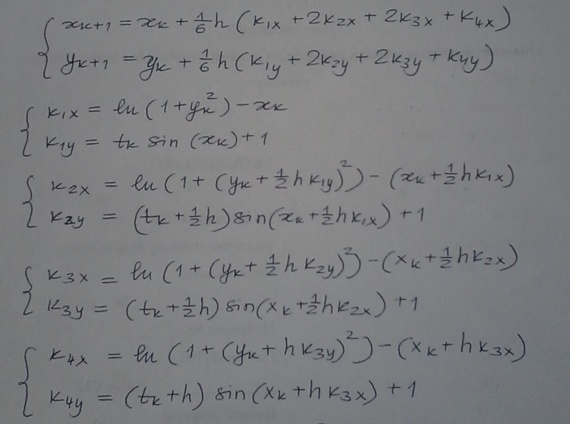 xₖ₊₁ = xₖ + 1/6 h (k₁ₓ + 2k₂ₓ + 2k₃ₓ + k₄ₓ)
yₖ₊₁ = yₖ + 1/6 h (k₁y + 2k₂y + 2k₃y + k₄y)
k₁ₓ = ln (1+yₖ²) − xₖ
k₁y = tₖ sin (xₖ) + 1
k₂ₓ = ln (1 + (yₖ + 1/2 h k₁y)²) − (xₖ + 1/2 h k₁ₓ)
k₂y = (tₖ + 1/2 h) sin(xₖ + 1/2 h k₁ₓ) + 1
k₃ₓ = ln (1 + (yₖ + 1/2 h k₂y)²) − (xₖ + 1/2 h k₂ₓ)
k₃y = (tₖ + 1/2 h) sin(xₖ + 1/2 h k₂ₓ) + 1
k₄ₓ = ln (1 + (yₖ + h k₃y)²) − (xₖ + h k₃ₓ)
k₄y = (tₖ + h) sin (xₖ + h k₃ₓ) + 1